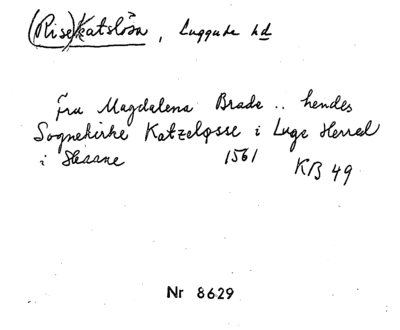 (Rise)Katslösa, Luggude hd
Fru Magdalena Brade .. hendes
Sognekirke Katzeløsse i Luge Herred
i Skaane 1561 KB 49
Nr 8629